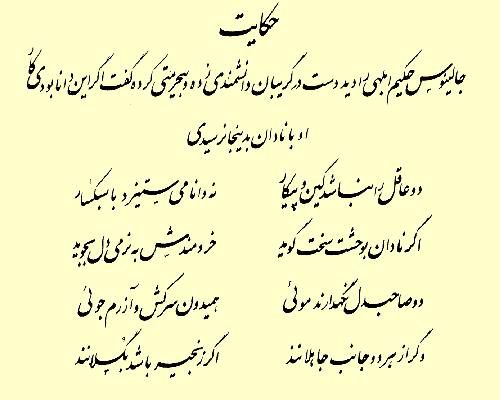 حکایت
جالینوس حکیم ابلهی را دید دست در گریبان دانشمندی زده و بیحرمتی کرده گفت اگر این دانا بودی کار
او با نادان بدینجا نرسیدی
دو عاقل را نباشد کین و پیکار نه دانا می ستیزد با سبکسار
اگر نادان بوحشت سخت گوید خردمندش به نرمی دل بجوید
دو صاحبدل نگهدارند موئی همیدون سرکش و آزرم جوئی
وگر از هر دو جانب جاهلانند اگر زنجیر باشد بگسلانند